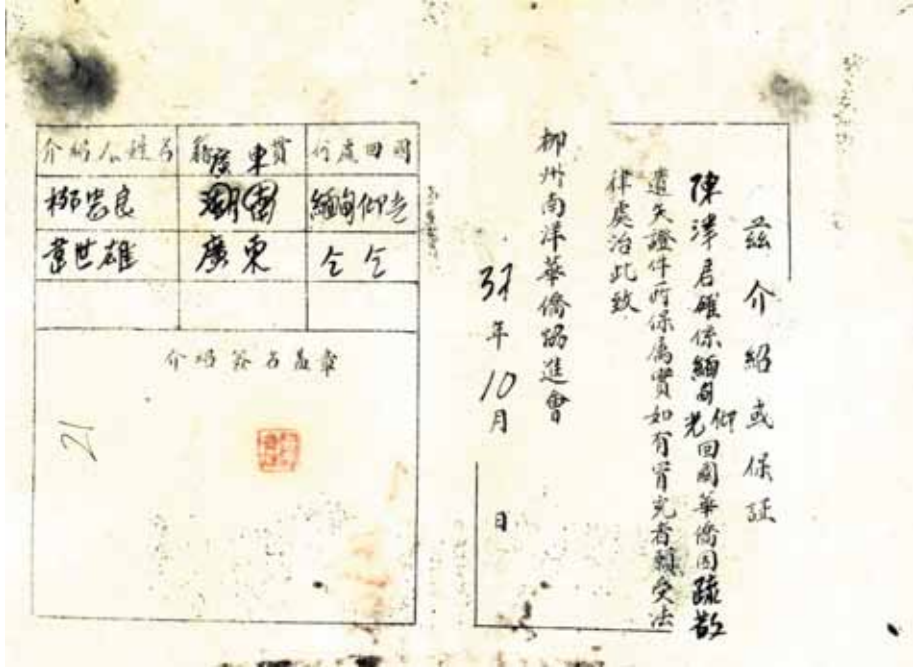 茲介紹或保証
陳澤君確係緬甸仰光回國華僑因疏散
遺失證件所保屬實如有冒充者願受法
律處治此致
柳州南洋華僑協進會
年10月 日
介紹人姓名 籍貫 何處回國
忠良 廣東 緬甸仰光
韋世雄 廣東 仝仝
介紹簽名蓋章
21